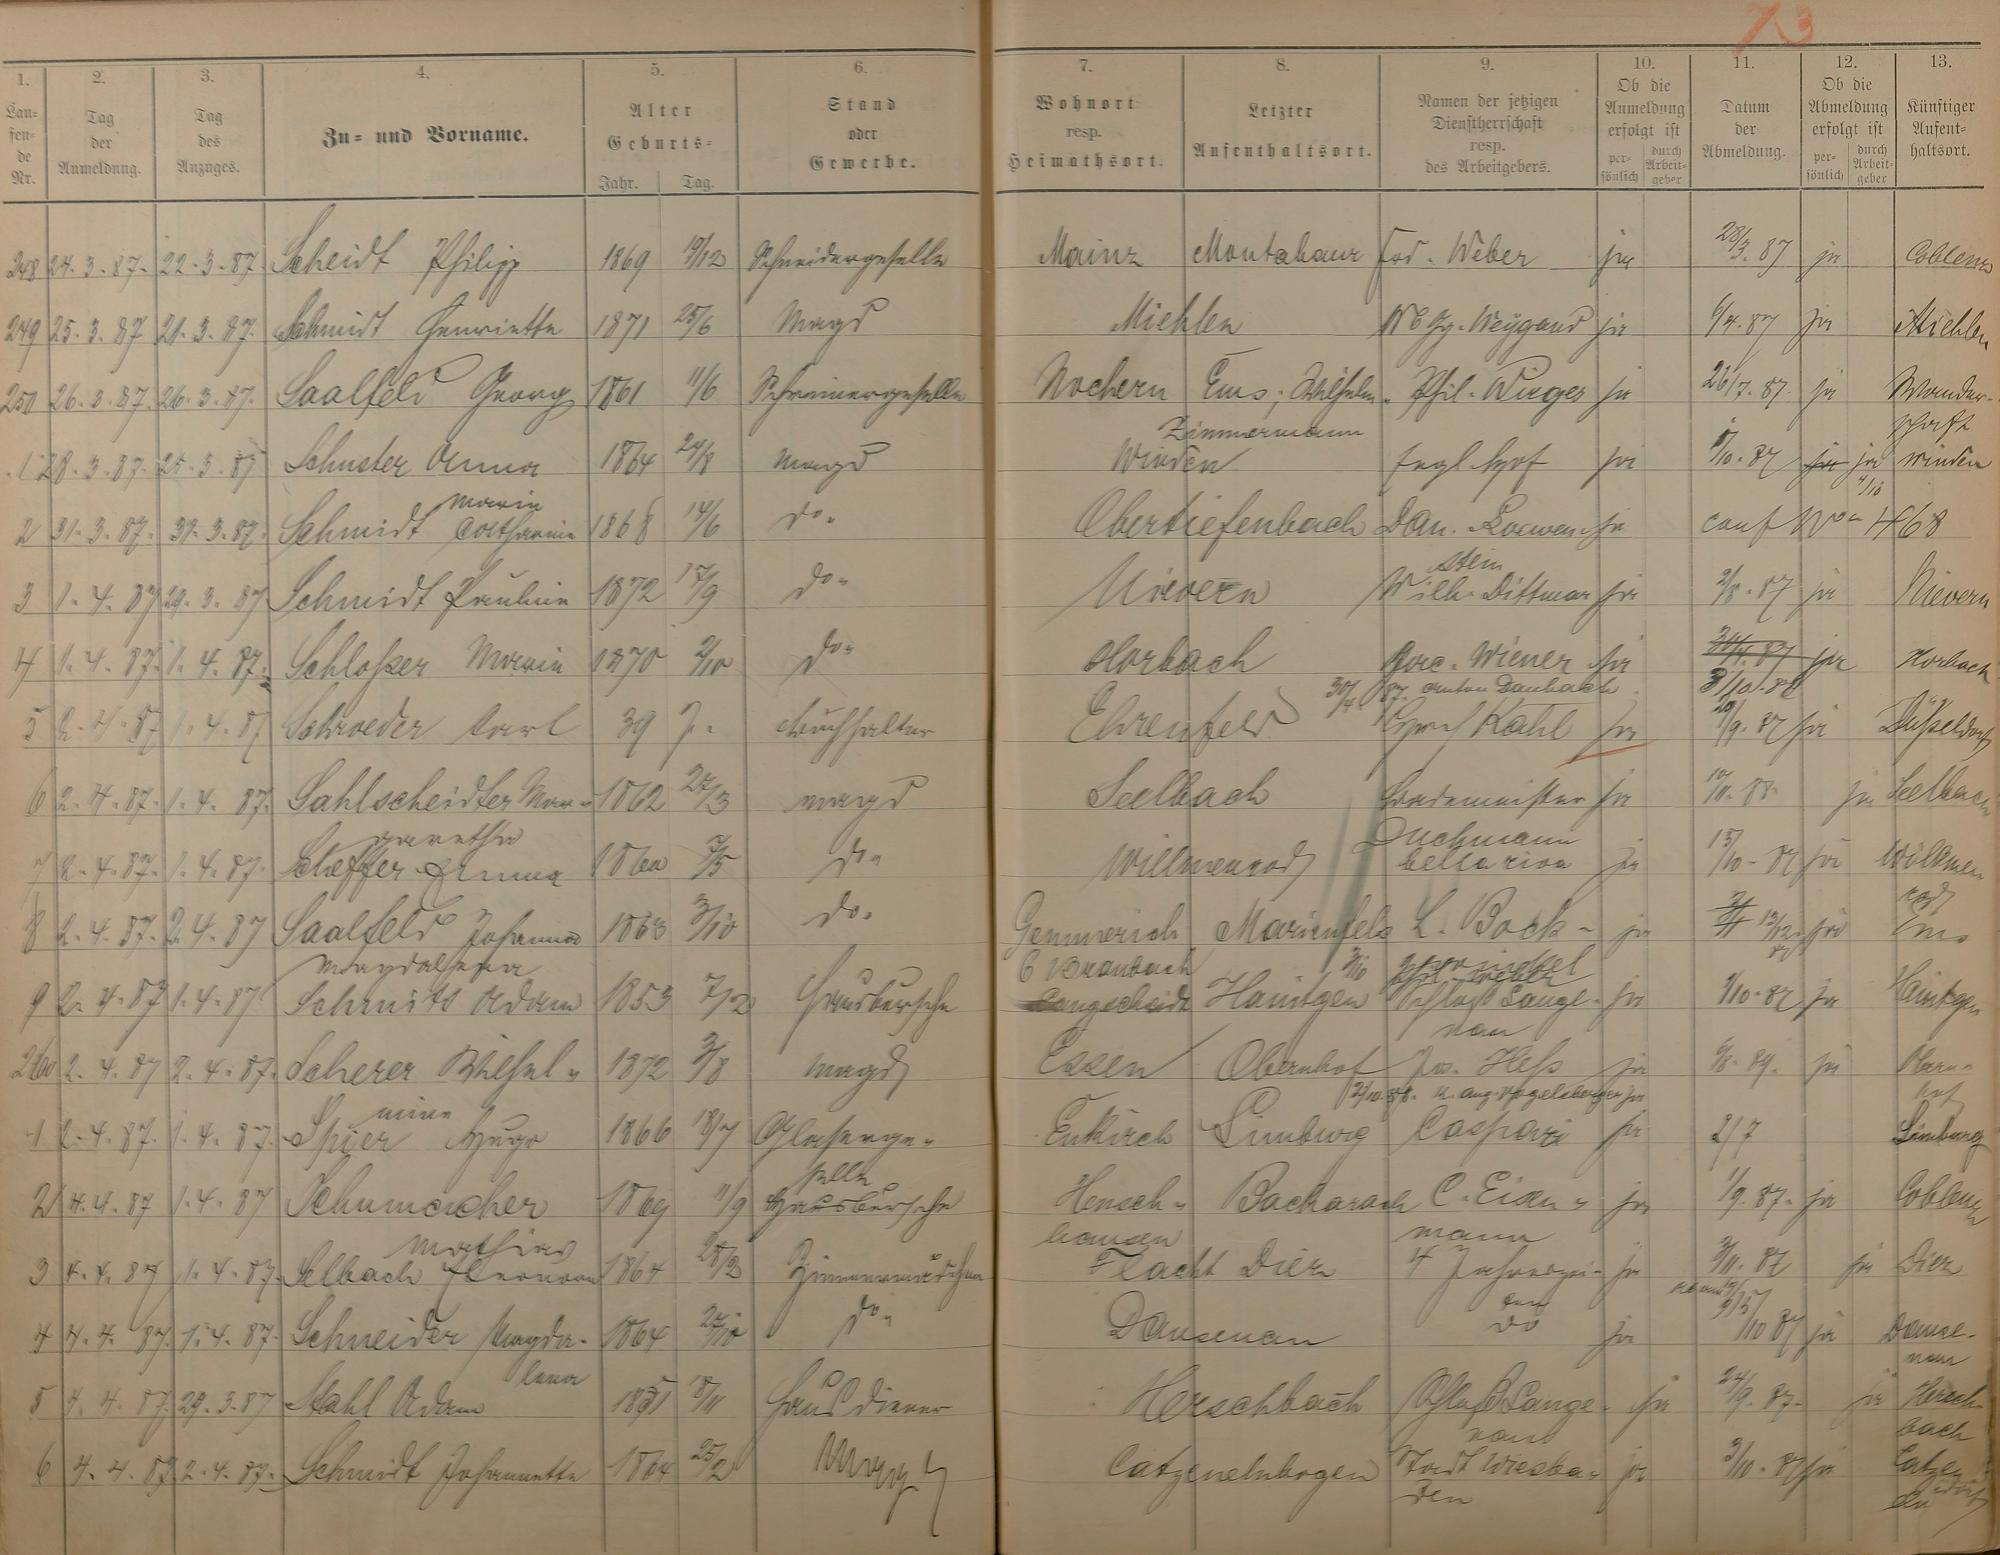 73
1. 2. 3. 4. 5. 6. 7. 8. 9. 10. 11. 12. 13.
Lau-
fen-
de
Nr.
Tag
der
Anmeldung.
Tag
des
Anzuges.
Zu- und Vorname.
Alter
Geburts-
Jahr. Tag.
Stand
oder
Gewerbe.
Wohnort
resp.
Heimathsort.
Letzter
Aufenthaltsort.
Namen der jetzigen
Dienstherrschaft
resp.
des Arbeitgebers.
Ob die
Anmeldung
erfolgt ist
per-
sönlich
durch
Arbeit-
geber
Datum
der
Abmeldung.
Ob die
Abmeldung
erfolgt ist
per-
sönlich
durch
Arbeit-
geber
Künftiger
Aufent-
haltsort.
248 24.3.87. 22.3.87. Scheidt Philipp 1869 19/12 Schneidergeselle Mainz Montabaur Weber ja 28/3.87 ja Coblenz
249 25.3.87 21.3.87. Schmidt Henriette 1871 25/6 Magd Miehlen Weygand ja 6/4.87 ja Miehlen
250 26.3.87. 26.3.87. Saalfeld Georg 1861 11/6 Schreinergeselle Nochern Ems, Wilhelm Phil. Unger ja 26/7.87. ja Wander-
schaft
Zimmermann
1 28.3.87. 25.3.87 Schuster Anna 1864 24/8 Magd Winden Engl. Hof ja 1/10.87 ja ja Winden
4/10
Marie
2 31.3.87. 31.3.87. Schmidt Catharine 1868 14/6 do. Obertiefenbach Dan. Loewen- ja conf No 468
stein
3 1.4.87 29.3.87 Schmidt Pauline 1872 17/9 do. Nievern Wilh. Dittmar ja 2/8.87 ja Nievern
4 1.4.87. 1.4.87. Schloßer Marie 1870 2/10 do. Horbach Wiener ja 30/4.87 ja Horbach
30/4 87. Anton Daubach 3/10.87
5 2.4.87 1.4.87 Schroeder Carl 39 J. Buchhalter Ehrenfeld Kahl ja 9.87 ja Düßeldorf
6 2.4.87. 1.4.87. Sahlscheidter Mar- 1862 27/3 Magd Seelbach Bademeister ja 10/11.88. ja Seelbach
garetha Duchmann
7 2.4.87. 1.4.87. Scheffer Emma 7/5 do. Willmenrod bella riva ja 15/10.87 ja Willmen
rod
8 2.4.87. 2.4.87 Saalfeld Johanna 1863 3/10 do. Gemmerich Marienfels L. Bock ja 13/12. ja Ems
Magdalena Braubach
9 2.4.87 1.4.87 Schmitt Adam 1853 7/12 Hausbursche Langscheidt Hainigen Schloß Lange- ja 1/10.87 ja
nau
260 2.4.87 2.4.87. Scherer Wilhel- 1872 3/8 Magd Essen Obernhof Jos. Heß ja 6/8.89. ja Obern-
hof
mine 2/10.88. u. Aug. Vogelsberger ja
1 2.4.87. 1.4.87. Spier Hugo 1866 18/7 Glaserge- Enkirch Limburg Caspari ja 2/7 Limburg
selle
2 4.4.87 1.4.87 Schumacher 1869 11/9 Hausbursche Hensch- Bacharach C. Eisen- ja 1/9.87. ja Coblenz
Mathias hausen mann
3 4.4.87 1.4.87. Selbach Eleonore 1864 28/2 Zimmermädchen Flacht Diez 4 Jahreszei- ja 3/11.87 ja Diez
ten
4 4.4.87. 1.4.87. Schneider Magda- 1864 27/10 do. Dausenau do ja /10 87 ja Dause-
nau
lena
5 4.4.87. 29.3.87 Stahl Adam 18/11 Hausdiener Herschbach Schloß Lange- ja 24/9.87. ja Hersch-
nau bach
6 4.4.87. 2.4.87. Schmidt Johannette 1864 25/2 Magd Catzenelnbogen Stadt Wiesba- ja 3/10.87 ja
den